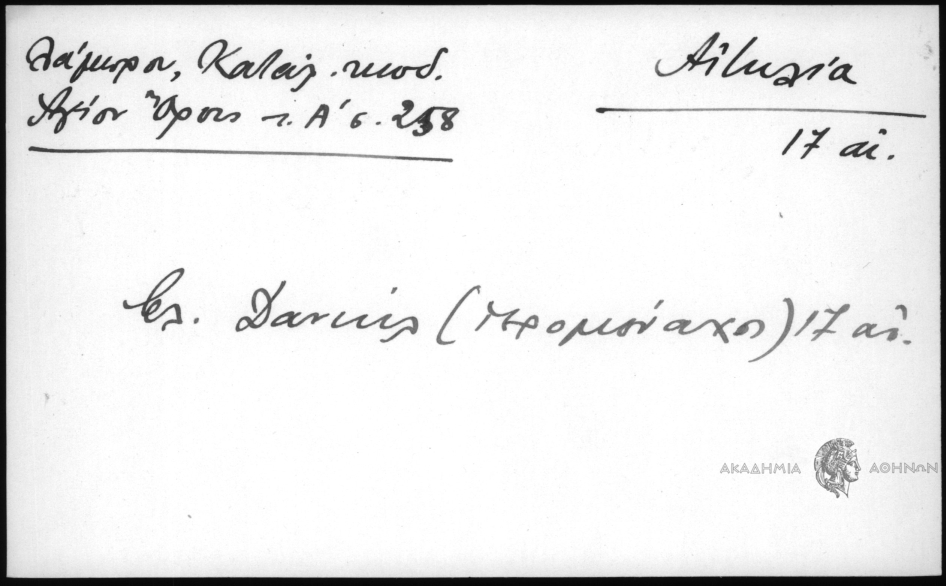 Λάμπρου, Κατάλ. κωδ.
Ἁγίου Ὄρους τ. Α' σ. 258
Αἰτωλία
17 αἰ.
βλ. Δανιήλ (ἱερομόναχος) 17 αἰ.
ΑΚΑΔΗΜΙΑ ΑΘΗΝΩΝ